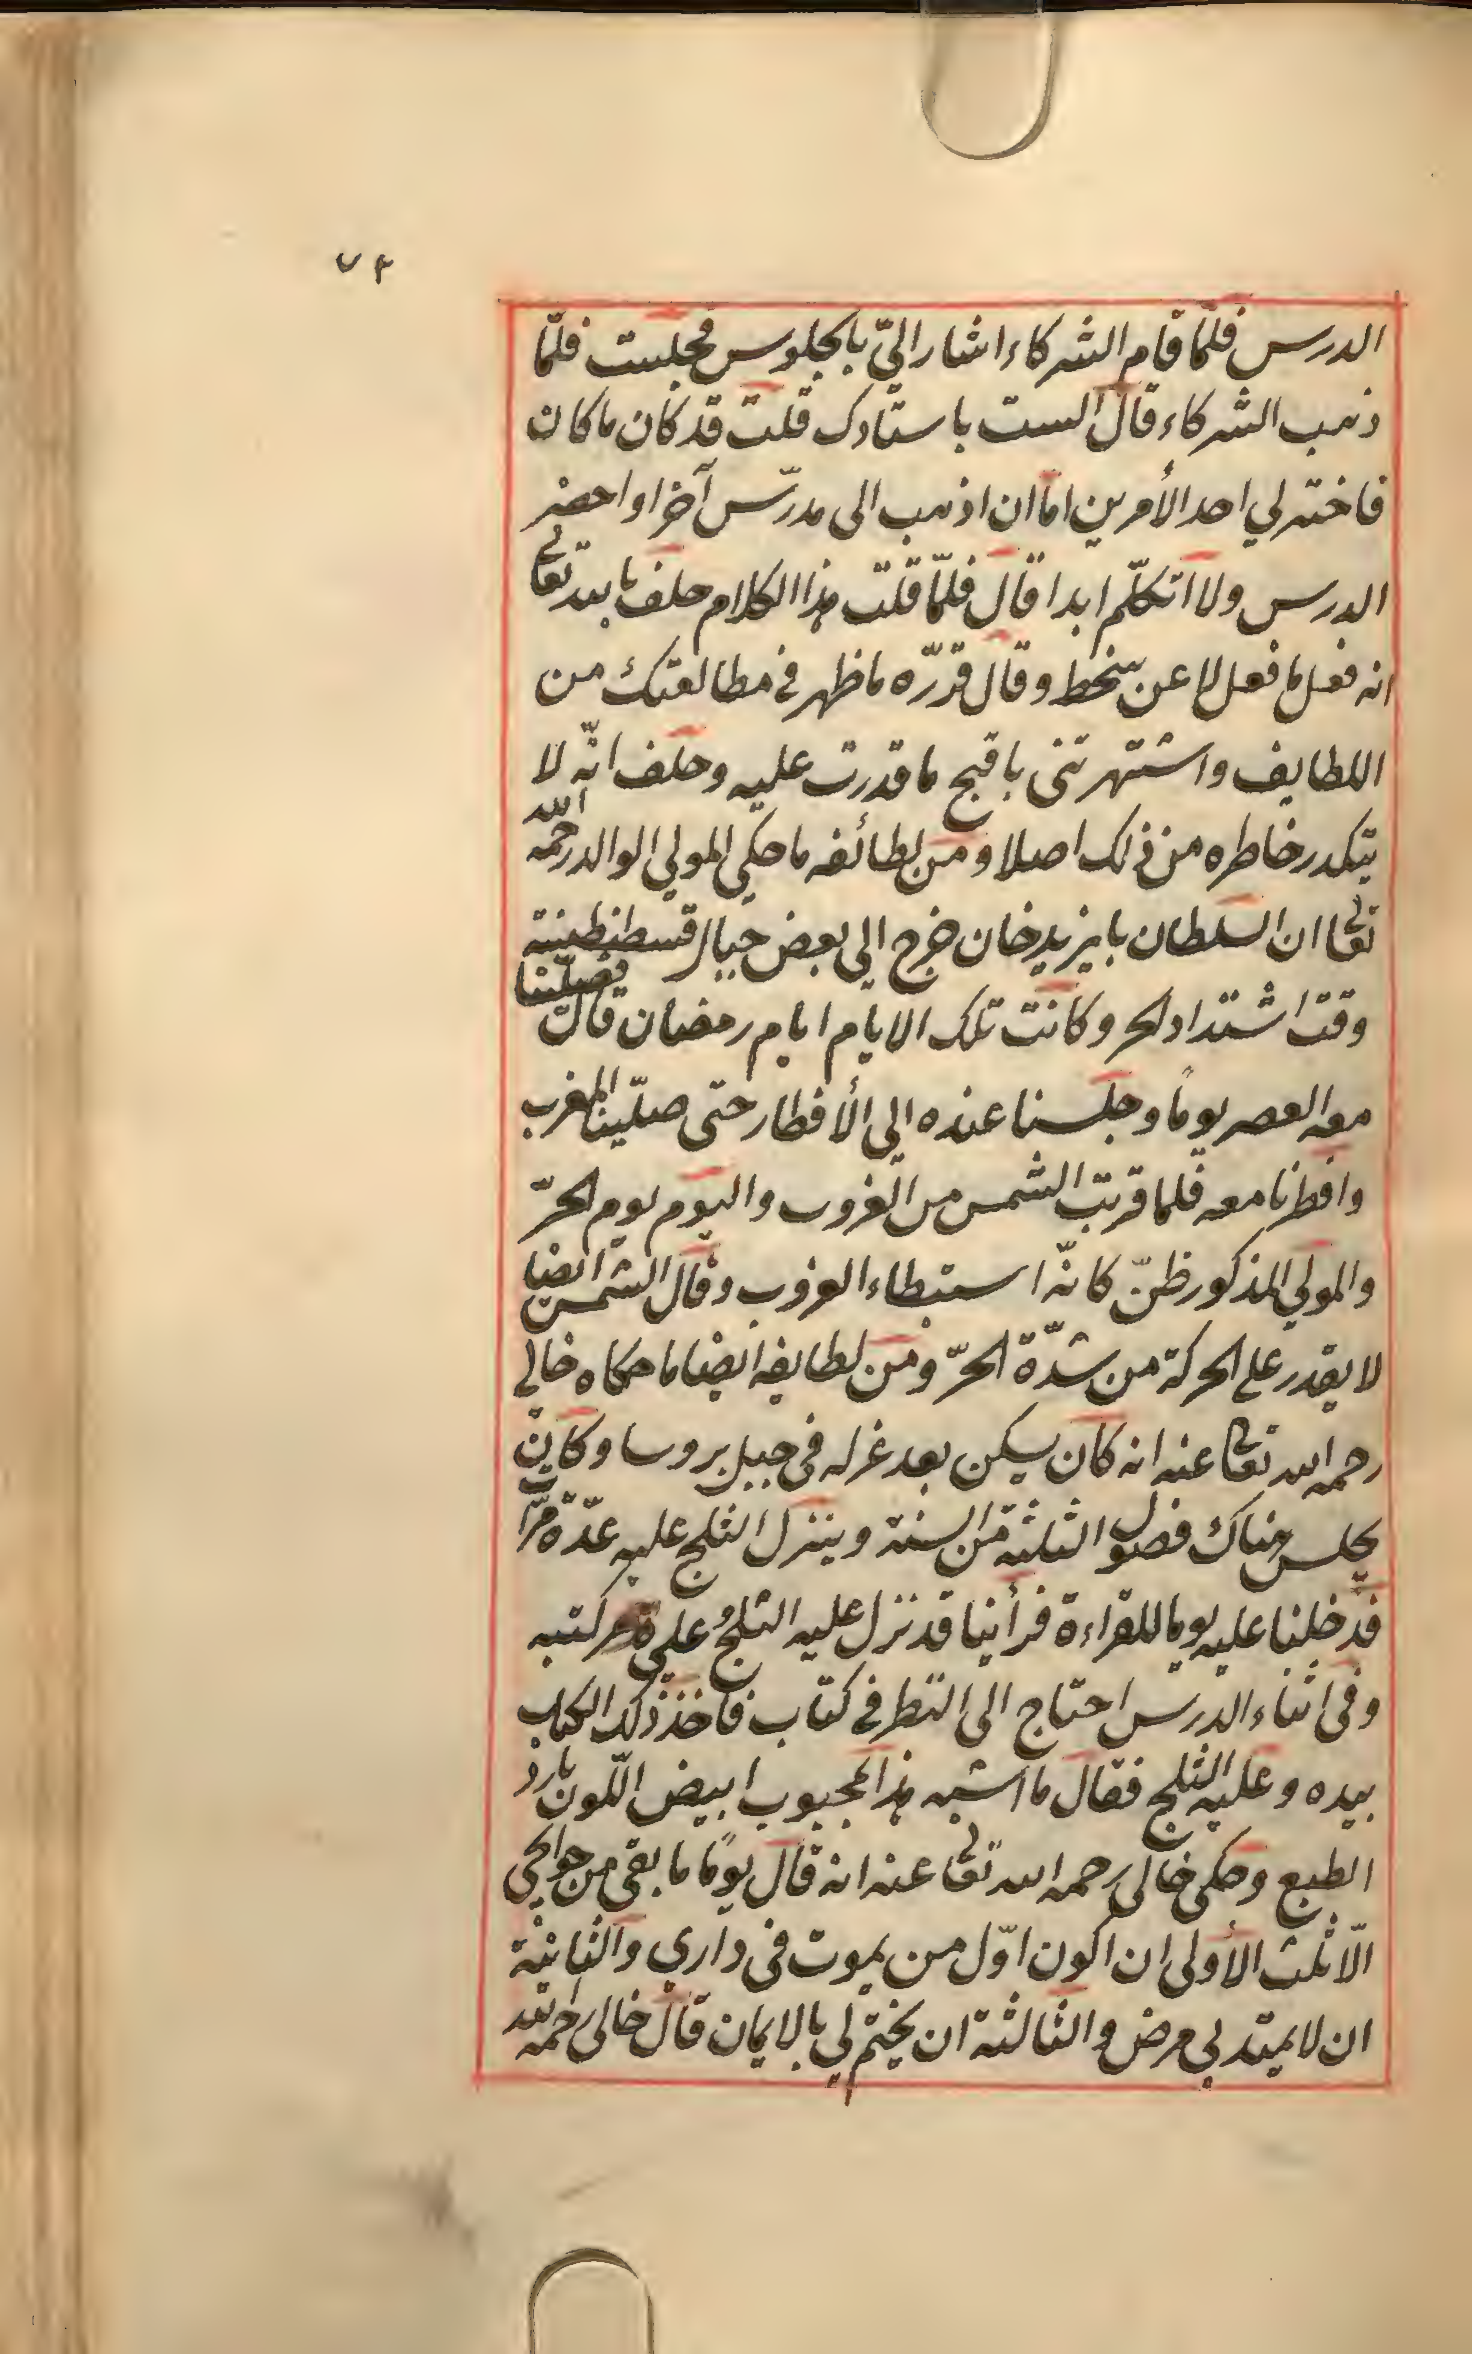 ٧٣
الدرس فلمّا قام الشركاء اشار اليّ بالجلوس فجلست فلمّا
ذهب الشركاء قال الست باستادك قلت قد كان ما كان
فاختر لي احد الأمرين امّا ان اذهب الى مدرّس آخر او احضر
الدرس ولا اتكلّم ابدا قال فلمّا قلت هذا الكلام حلف بالله تعالى
انه فعل ما فعل لا عن سخط وقال قدرّه ما ظهر في مطالعتك من
اللطايف واشتهرتنى باقبح ما قدرت عليه وحلف انّه لا
يتكدر خاطره من ذلك اصلا ومن لطائفه ما حكي المولي الوالد رحمه الله
تعالى ان السلطان بايزيد خان خرج الي بعض جبال قسطنطينية
وقت اشتداد الحر وكانت تلك الايام ايام رمضان قال فصلّينا
معه العصر يومًا وجلسنا عنده الي الأفطار حتى صلّينا المغرب
وافطرنا معه فلما قربت الشمس من الغروب واليوم يوم الحرّ
والمولي المذكور ظنّ كانّه استبطاء الغروب وقال الشمس ايضا
لا يقدر على الحركة من شدّة الحرّ ومن لطايفه ايضا ما حكاه خالي
رحمه الله تعالى عنه انه كان يسكن بعد عزله في جبل بروسا وكان
يجلس هناك فصول الثلثة من السنة وينزل الثلج عليه عدّة مرّات
فدخلنا عليه يوما للقراءة فرأينا قد نزل عليه الثلجُ علي كتبه
وفي اثناء الدرس احتاج الى النظر في كتاب فاخذ ذلك الكتاب
بيده وعليه الثلج فقال ما اشبه هذا المحبوب ابيض اللّون بارد
الطبع وحكى خالي رحمه الله تعالى عنه انه قال يومًا ما بقي من حوايجي
الّا ثلث الأولى ان اكون اوّل من يموت في داري والثانية
ان لا يمتد بي مرض والثالثة ان يختم لي بالايمان قال خالي رحمه الله